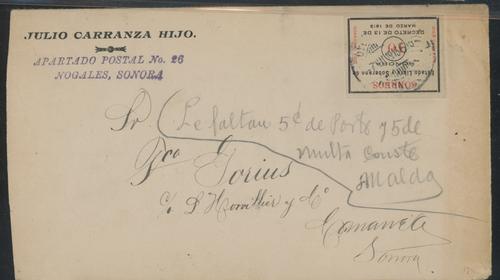 JULIO CARRANZA HIJO.
APARTADO POSTAL No. 26
NOGALES, SONORA
CORREOS
Estado Libre y Soberano de
DECRETO DE 13 DE
MARZO DE 1913
Sr.
Le faltan 5¢ de Porte y 5 de
multa conste
Fco
c/ y Cº
Cananea
Sonora